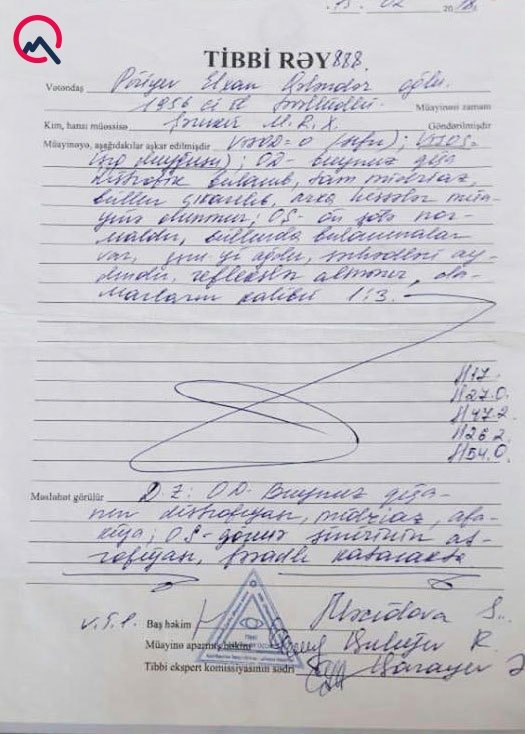 15. 02 2018.
TİBBİ RƏY 888.
Vətəndaş Elxan Qələndər oğlu.
1956 ci il təvəllüdlü. Müayinəsi zamanı
Kim, hansı müəssisə M.R.X. Göndərilmişdir
Müayinəyə, aşağıdakılar aşkar edilmişdir VİSOD=0 (sıfır); VİSOS-
işıq duyğusu); OD- buynuz qişa
distrofik bulanıb, tam midriaz,
büllur çıxarılıb, arxa hissələr müa-
yinə olunmur; OS- ön şöbə nor-
maldır, büllurda bulanmalar
var, görm. s. ağdır, sərhədləri ay-
dındır, reflekslər alınmır, da-
marların kalibri 1:3.
H17.
H27.0.
H47.2.
H26.2.
H54.0.
Məsləhət görülür D.Z: OD- Buynuz qişa-
nın distrofiyası, midriaz, afa-
kiya; OS- görmə sinirinin at-
rofiyası, fəsadlı katarakta
Baş həkim Məcidova S.
Müayinə aparan həkim Quluyev R.
Tibbi ekspert komissiyasının sədri Qarayev